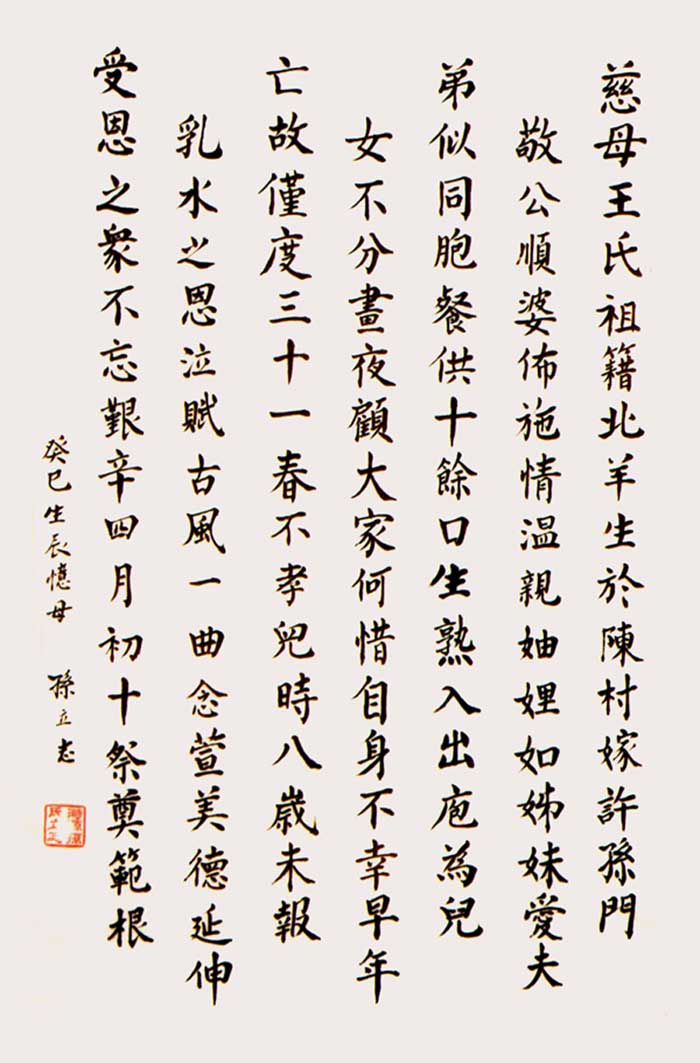 慈母王氏祖籍北羊生於陳村嫁許孫門
敬公順婆佈施情温親妯娌如姊妹愛夫
弟似同胞餐供十餘口生熟入出庖為兒
女不分晝夜顧大家何惜自身不幸早年
亡故僅度三十一春不孝兒時八歲未報
乳水之恩泣賦古風一曲念萱美德延伸
受恩之衆不忘艱辛四月初十祭奠範根
癸巳生辰憶母 孫立志